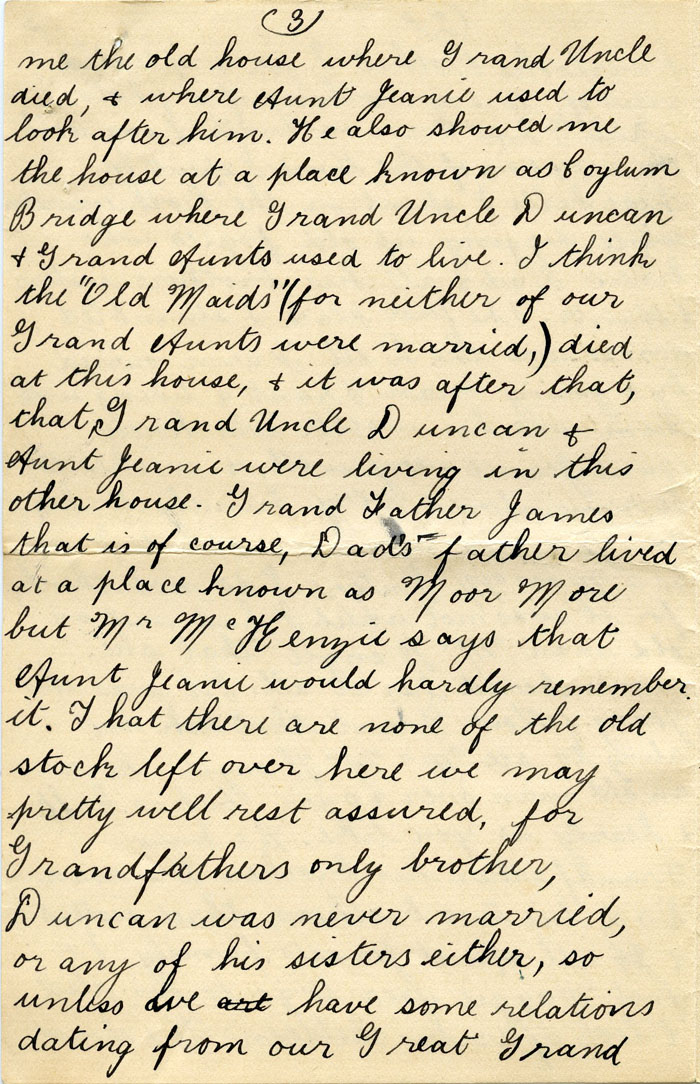 (3)
me the old house where Grand Uncle
died, & where Aunt Jeanie used to
look after him. He also showed me
the house at a place known as Coylum
Bridge where Grand Uncle Duncan
& Grand Aunts used to live. I think
the "Old Maids" (for neither of our
Grand Aunts were married,) died
at this house, & it was after that,
that, Grand Uncle Duncan &
Aunt Jeanie were living in this
other house. Grand Father James
that is of course, Dad's father lived
at a place known as Moor More
but Mr McKenzie says that
Aunt Jeanie would hardly remember
it. That there are none of the old
stock left over here we may
pretty well rest assured, for
Grandfathers only brother,
Duncan was never married,
or any of his sisters either, so
unless we art have some relations
dating from our Great Grand